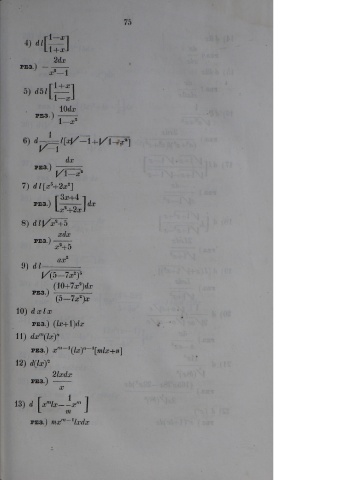 75
4) d l [1−x / 1+x]
РЕЗ.) − 2dx / x²−1
5) d5l [1+x / 1−x]
РЕЗ.) 10dx / 1−x²
6) d 1/√−1 l[x√−1+√1−x²]
РЕЗ.) dx / √1−x²
7) d l [x³+2x²]
РЕЗ.) [3x+4 / x²+2x] dx
8) d l√x²+5
РЕЗ.) xdx / x²+5
9) d l ax² / √(5−7x²)³
РЕЗ.) (10+7x²)dx / (5−7x²)x
10) d x l x
РЕЗ.) (lx+1)dx
11) dxᵐ(lx)ⁿ
РЕЗ.) xᵐ⁻¹(lx)ⁿ⁻¹[mlx+n]
12) d(lx)²
РЕЗ.) 2lxdx / x
13) d [xᵐlx− 1/m xᵐ]
РЕЗ.) mxᵐ⁻¹lxdx